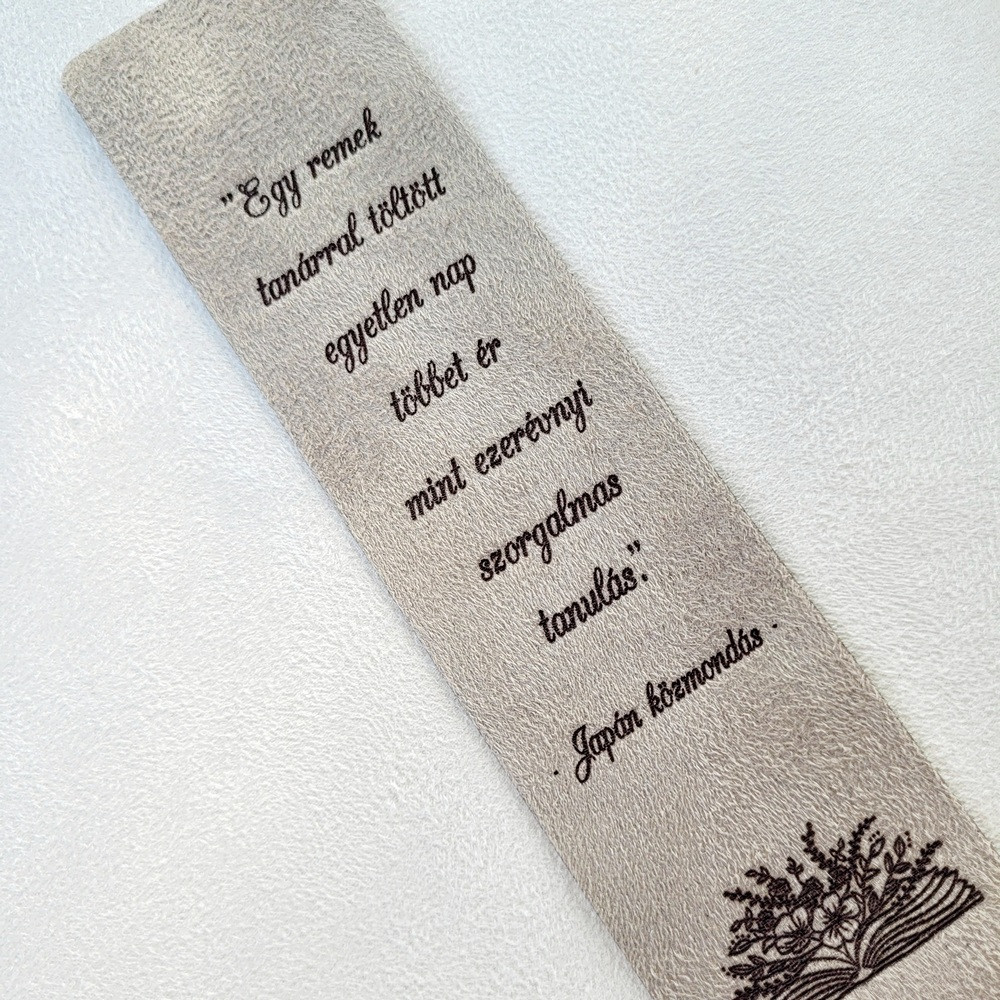 "Egy remek
tanárral töltött
egyetlen nap
többet ér
mint ezerévnyi
szorgalmas
tanulás".
· Japán közmondás ·